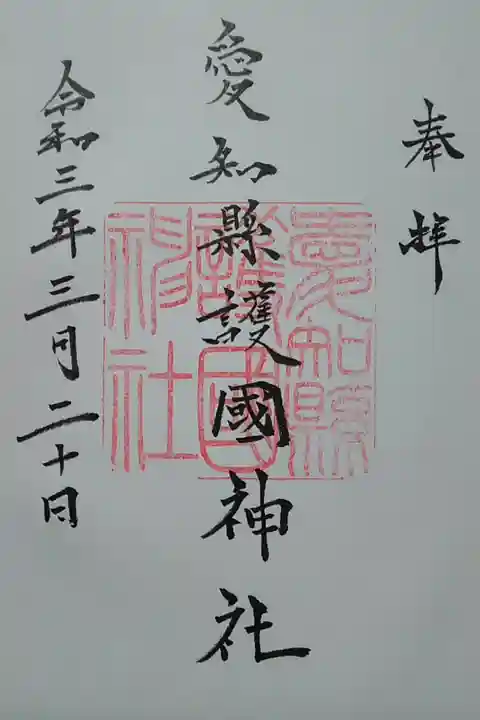 奉拝
愛知縣護國神社
愛知縣
護國
神社
令和三年三月二十日